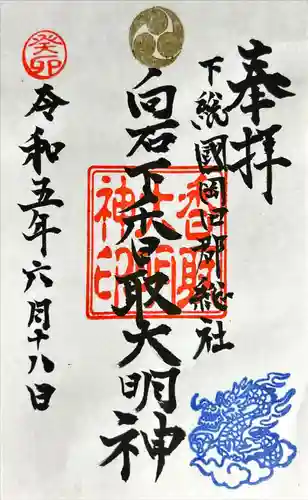 奉拝
下総國岡田郡総社
向石下香取大明神
香取
大明
神印
癸卯
令和五年六月十八日